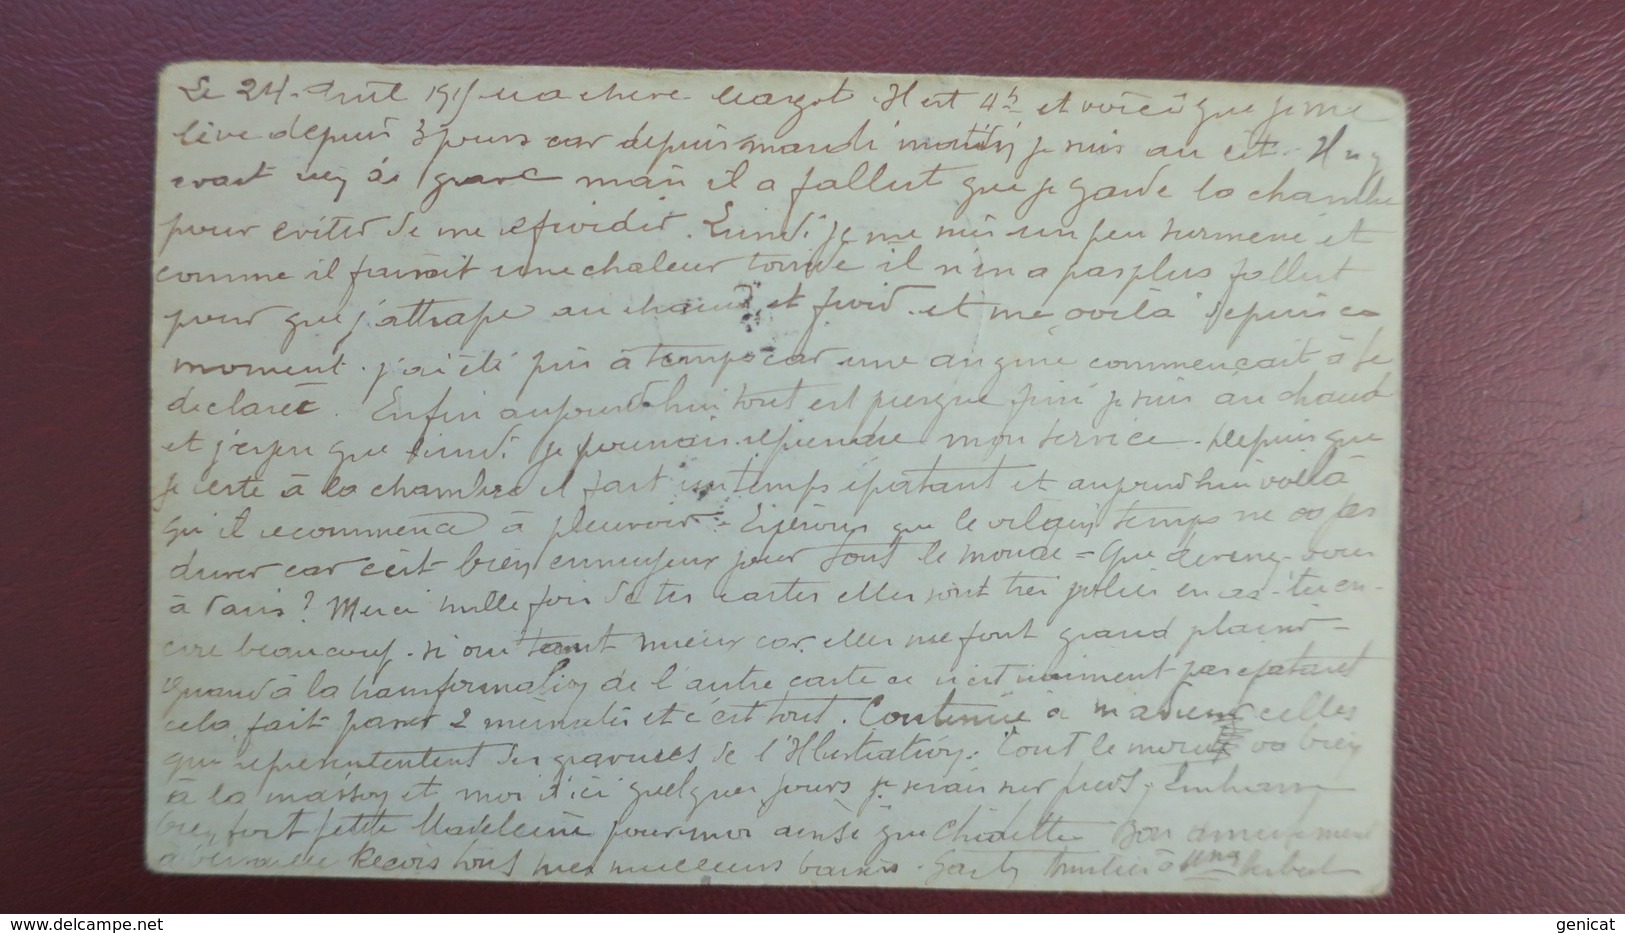 Le 24 Avril 1915 ma chère Margot. Il est 4h et voici que je me
lève depuis 3 jours car depuis mardi matin je suis au lit. Il n'y
avait rien de grave mais il a fallut que je garde la chambre
pour éviter de me refroidir. Lundi je me suis un peu surmené et
comme il faisait une chaleur torride il n'en a pas plus fallut
pour que j'attrape un chaud et froid. et me voilà depuis ce
moment. j'ai été pris à temps car une angine commençait à se
declarer. Enfin aujourd'hui tout est presque fini je suis au chaud
et j'espere que lundi je pourrais reprendre mon service. Depuis que
je reste à la chambre il fait un temps épatant et aujourd'hui voilà
qu'il recommence à pleuvoir. Espérons que le vilain temps ne va pas
durer car c'est bien ennuyeux pour tout le monde = Que devenez-vous
à Paris? Merci mille fois de tes cartes elles sont très jolies en as-tu en-
core beaucoup. si oui tant mieux car elles me font grand plaisir -
Quand à la transformation de l'autre carte ce n'est vraiment pas épatant
cela fait passer 2 minutes et c'est tout. Continue à m'adresser celles
qui representent des gravures de l'Illustration. Tout le monde va bien
à la maison et moi d'ici quelques jours je serais sur pieds. Embrasse
bien fort petite Madeleine pour moi ainsi que Bon amusement
Recois tous mes meilleurs baisers. à
genicat